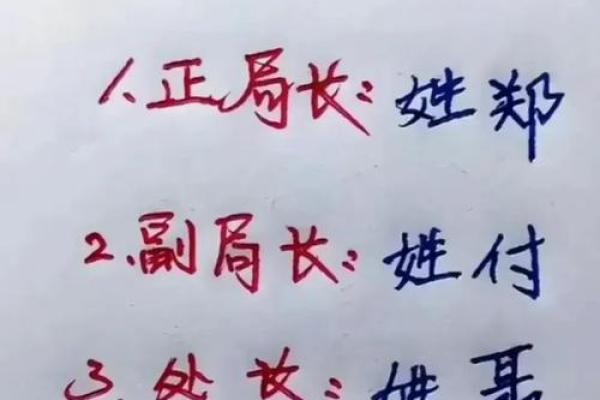 1、正局长：姓郑
2、副局长：姓付
3、处长：姓聂